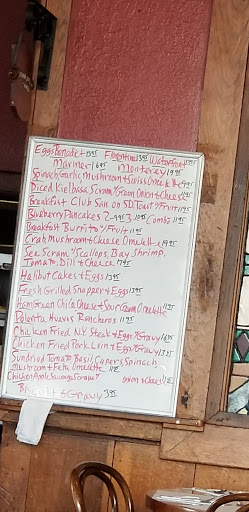 Eggs Benedict 13.95 Florentine 13.95 Waterfront
Mariner 16.95 Monterey 14.95
Spinach, Garlic, Mushroom + Swiss Omelette
Diced Kielbasa Scram/Green Onion + Cheese
Breakfast Club San on SD. Toast/Fruit
Blueberry Pancakes 2- 3- Combo
Breakfast Burrito/Fruit 11.95
Crab, Mushroom + Cheese Omelette 19.95
Sea Scram/Scallops, Bay Shrimp,
Tomato, Dill + Cheese
Halibut Cakes + Eggs
Fresh Grilled Snapper + Eggs 13.95
Ham, Green Chili, Cheese + Sour Cream Omelette
Polenta Huevos Rancheros 11.95
Chicken Fried N.Y. Steak + Eggs/Gravy
Chicken Fried Pork Loin + Eggs/Gravy
Sundried Tomato, Basil, Capers, Spinach
Mushroom + Feta Omelette
Chicken Apple Sausage Scram/ onion + Cheese
Biscuit + Gravy